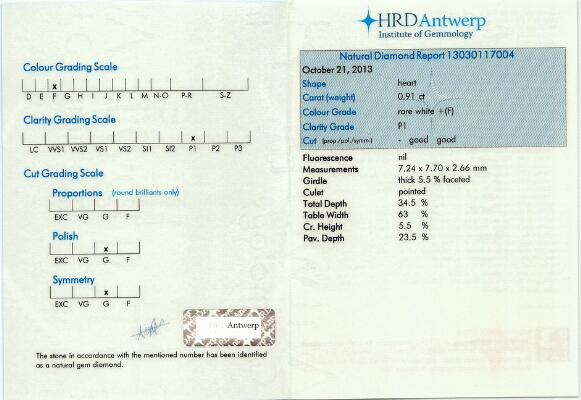 Colour Grading Scale
x
D E F G H I J K L M N-O P-R S-Z
Clarity Grading Scale
x
LC VVS1 VVS2 VS1 VS2 SI1 SI2 P1 P2 P3
Cut Grading Scale
Proportions (round brilliants only)
EXC VG G F
Polish
x
EXC VG G F
Symmetry
x
EXC VG G F
HRD Antwerp
The stone in accordance with the mentioned number has been identified
as a natural gem diamond.
HRD Antwerp
Institute of Gemmology
Natural Diamond Report 13030117004
October 21, 2013
Shape heart
Carat (weight) 0.91 ct
Colour Grade rare white +(F)
Clarity Grade P1
Cut (prop./pol./symm.) - good good
Fluorescence nil
Measurements 7.24 x 7.70 x 2.66 mm
Girdle thick 5.5 % faceted
Culet pointed
Total Depth 34.5 %
Table Width 63 %
Cr. Height 5.5 %
Pav. Depth 23.5 %